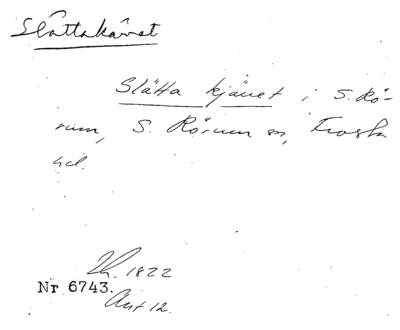 Slättakärret
Slätta kjäret i S. Rö-
rum, S. Rörum sn, Frosta
hd.
Lh. 1822
Nr 6743.
Akt 12.